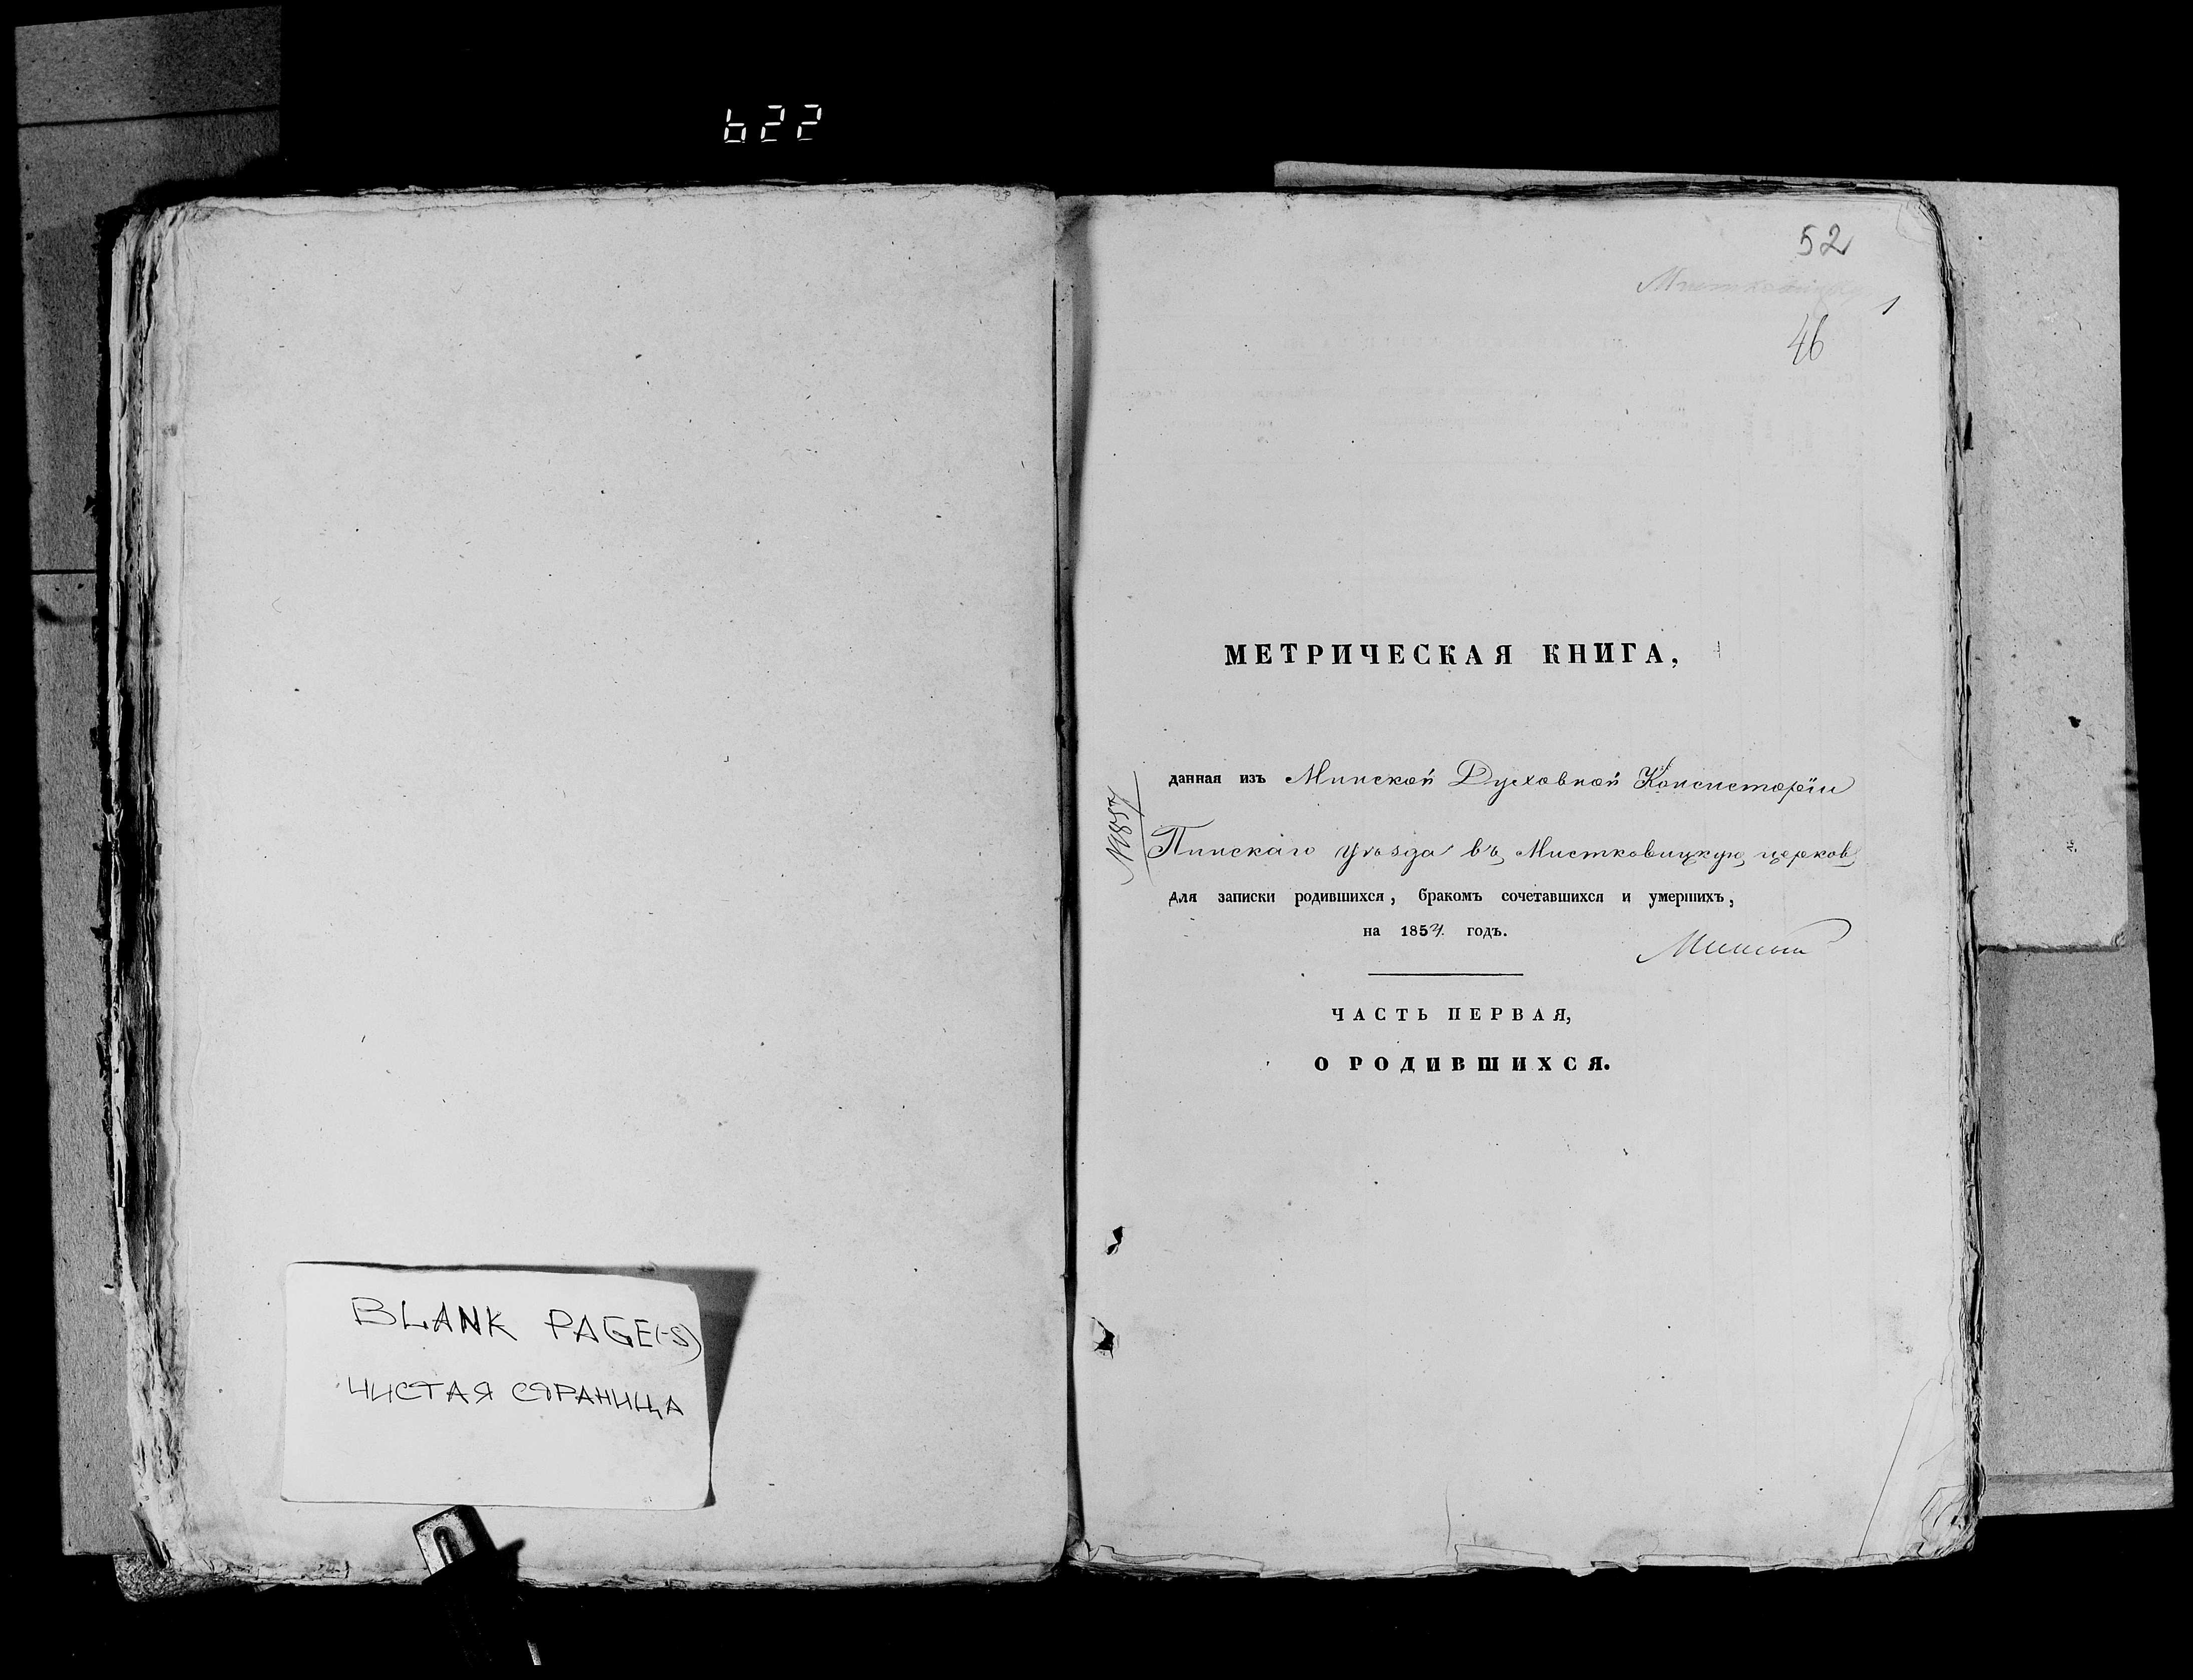 622
BLANK PAGE(-S)
ЧИСТАЯ СТРАНИЦА
52
1
46
МЕТРИЧЕСКАЯ КНИГА,
данная изъ Минской Духовной Консисторіи
Пинскаго уѣзда въ Мистковицкую церковь
для записки родившихся, бракомъ сочетавшихся и умершихъ,
на 1854 годъ.
ЧАСТЬ ПЕРВАЯ,
О РОДИВШИХСЯ.